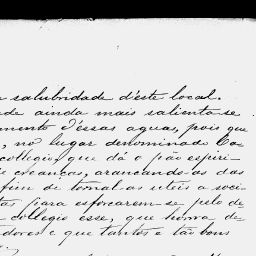 a salubridade d'éste local.
de ainda mais salienta-se
mento d'éssas aguas, pois que
, no lugar denominado Ca-
collegio, que dá o pão espiri-
creanças, arrancando-as das
fim de tornal-as uteis a soci-
tas para esforçarem-se pelo de-
collegio esse, que honra
dores e que tantos e tão bons